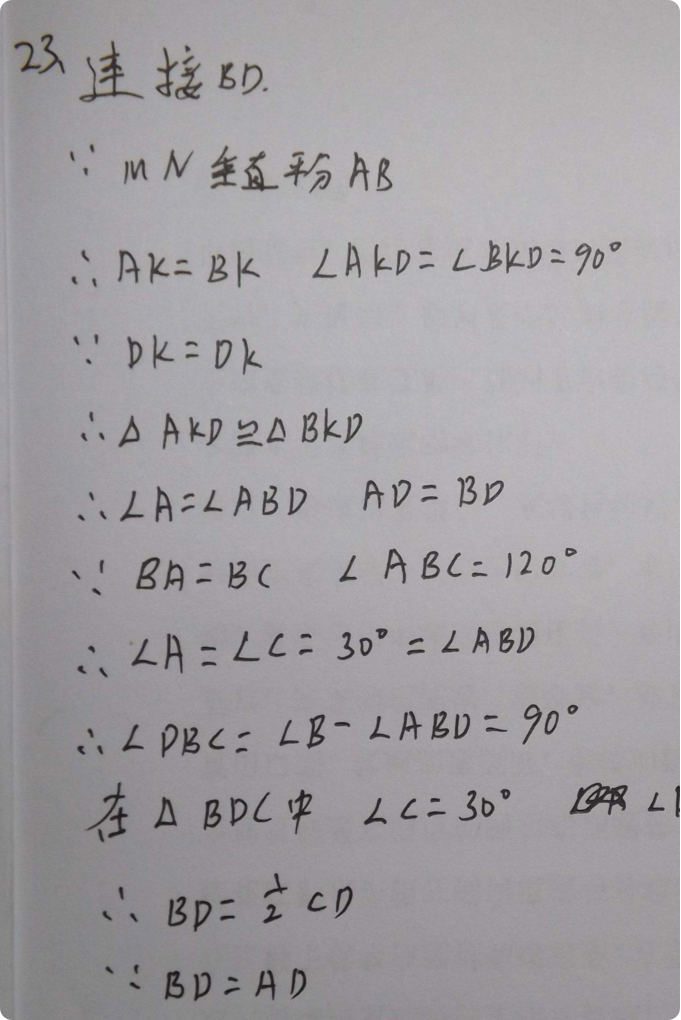 23、连接BD.
∵ MN 垂直平分 AB
∴ AK = BK ∠AKD = ∠BKD = 90°
∵ DK = DK
∴ △ AKD ≌ △ BKD
∴ ∠A = ∠ABD AD = BD
∵ BA = BC ∠ABC = 120°
∴ ∠A = ∠C = 30° = ∠ABD
∴ ∠DBC = ∠B - ∠ABD = 90°
在 △ BDC中 ∠C = 30° ∠
∴ BD = 1/2 CD
∵ BD = AD